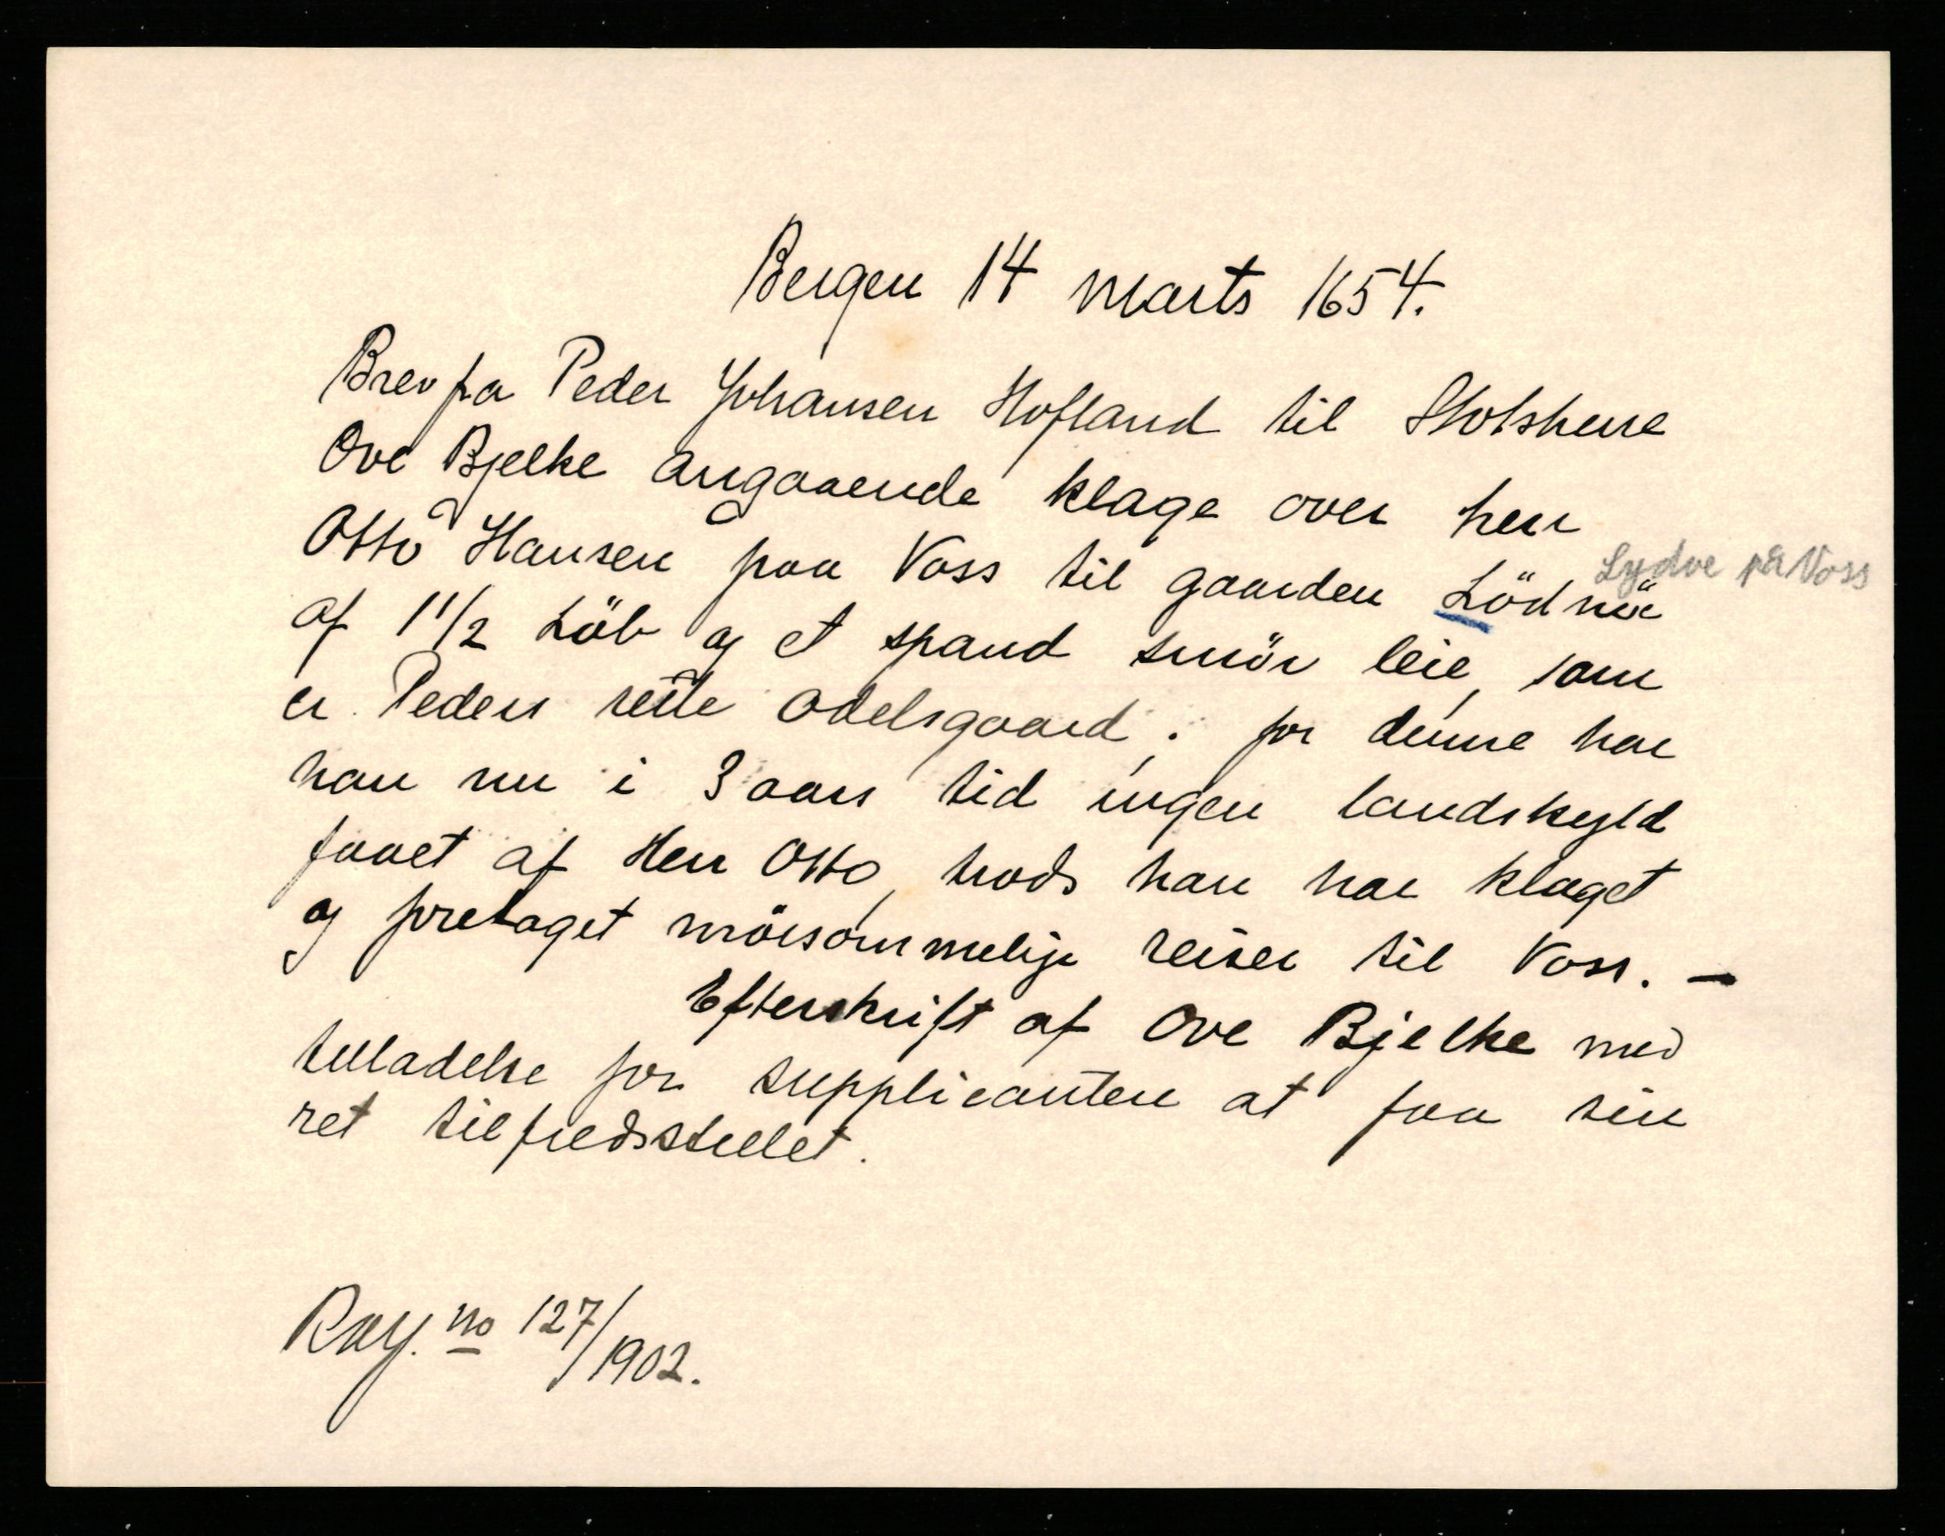 Bergen 14 Marts 1654.
Brev fra Peder Johansen Hofland til Slotsherre
Ove Bjelke angaaende klage over herr
Otto Hansen paa Voss til gaarden
Lydve på Voss
af 1 1/2 Löb og et spand smör leie, som
er Peders rette Odelsgaard; for denne har
han nu i 3 aars tid ingen landskyld
faaet af Herr Otto, trods han har klaget
og foretaget möisommelige reiser til Voss. —
Efterskrift af Ove Bjelke med
tilladelse for supplicanten at faa sin
ret tilfredsstillet.
no 127/1902.